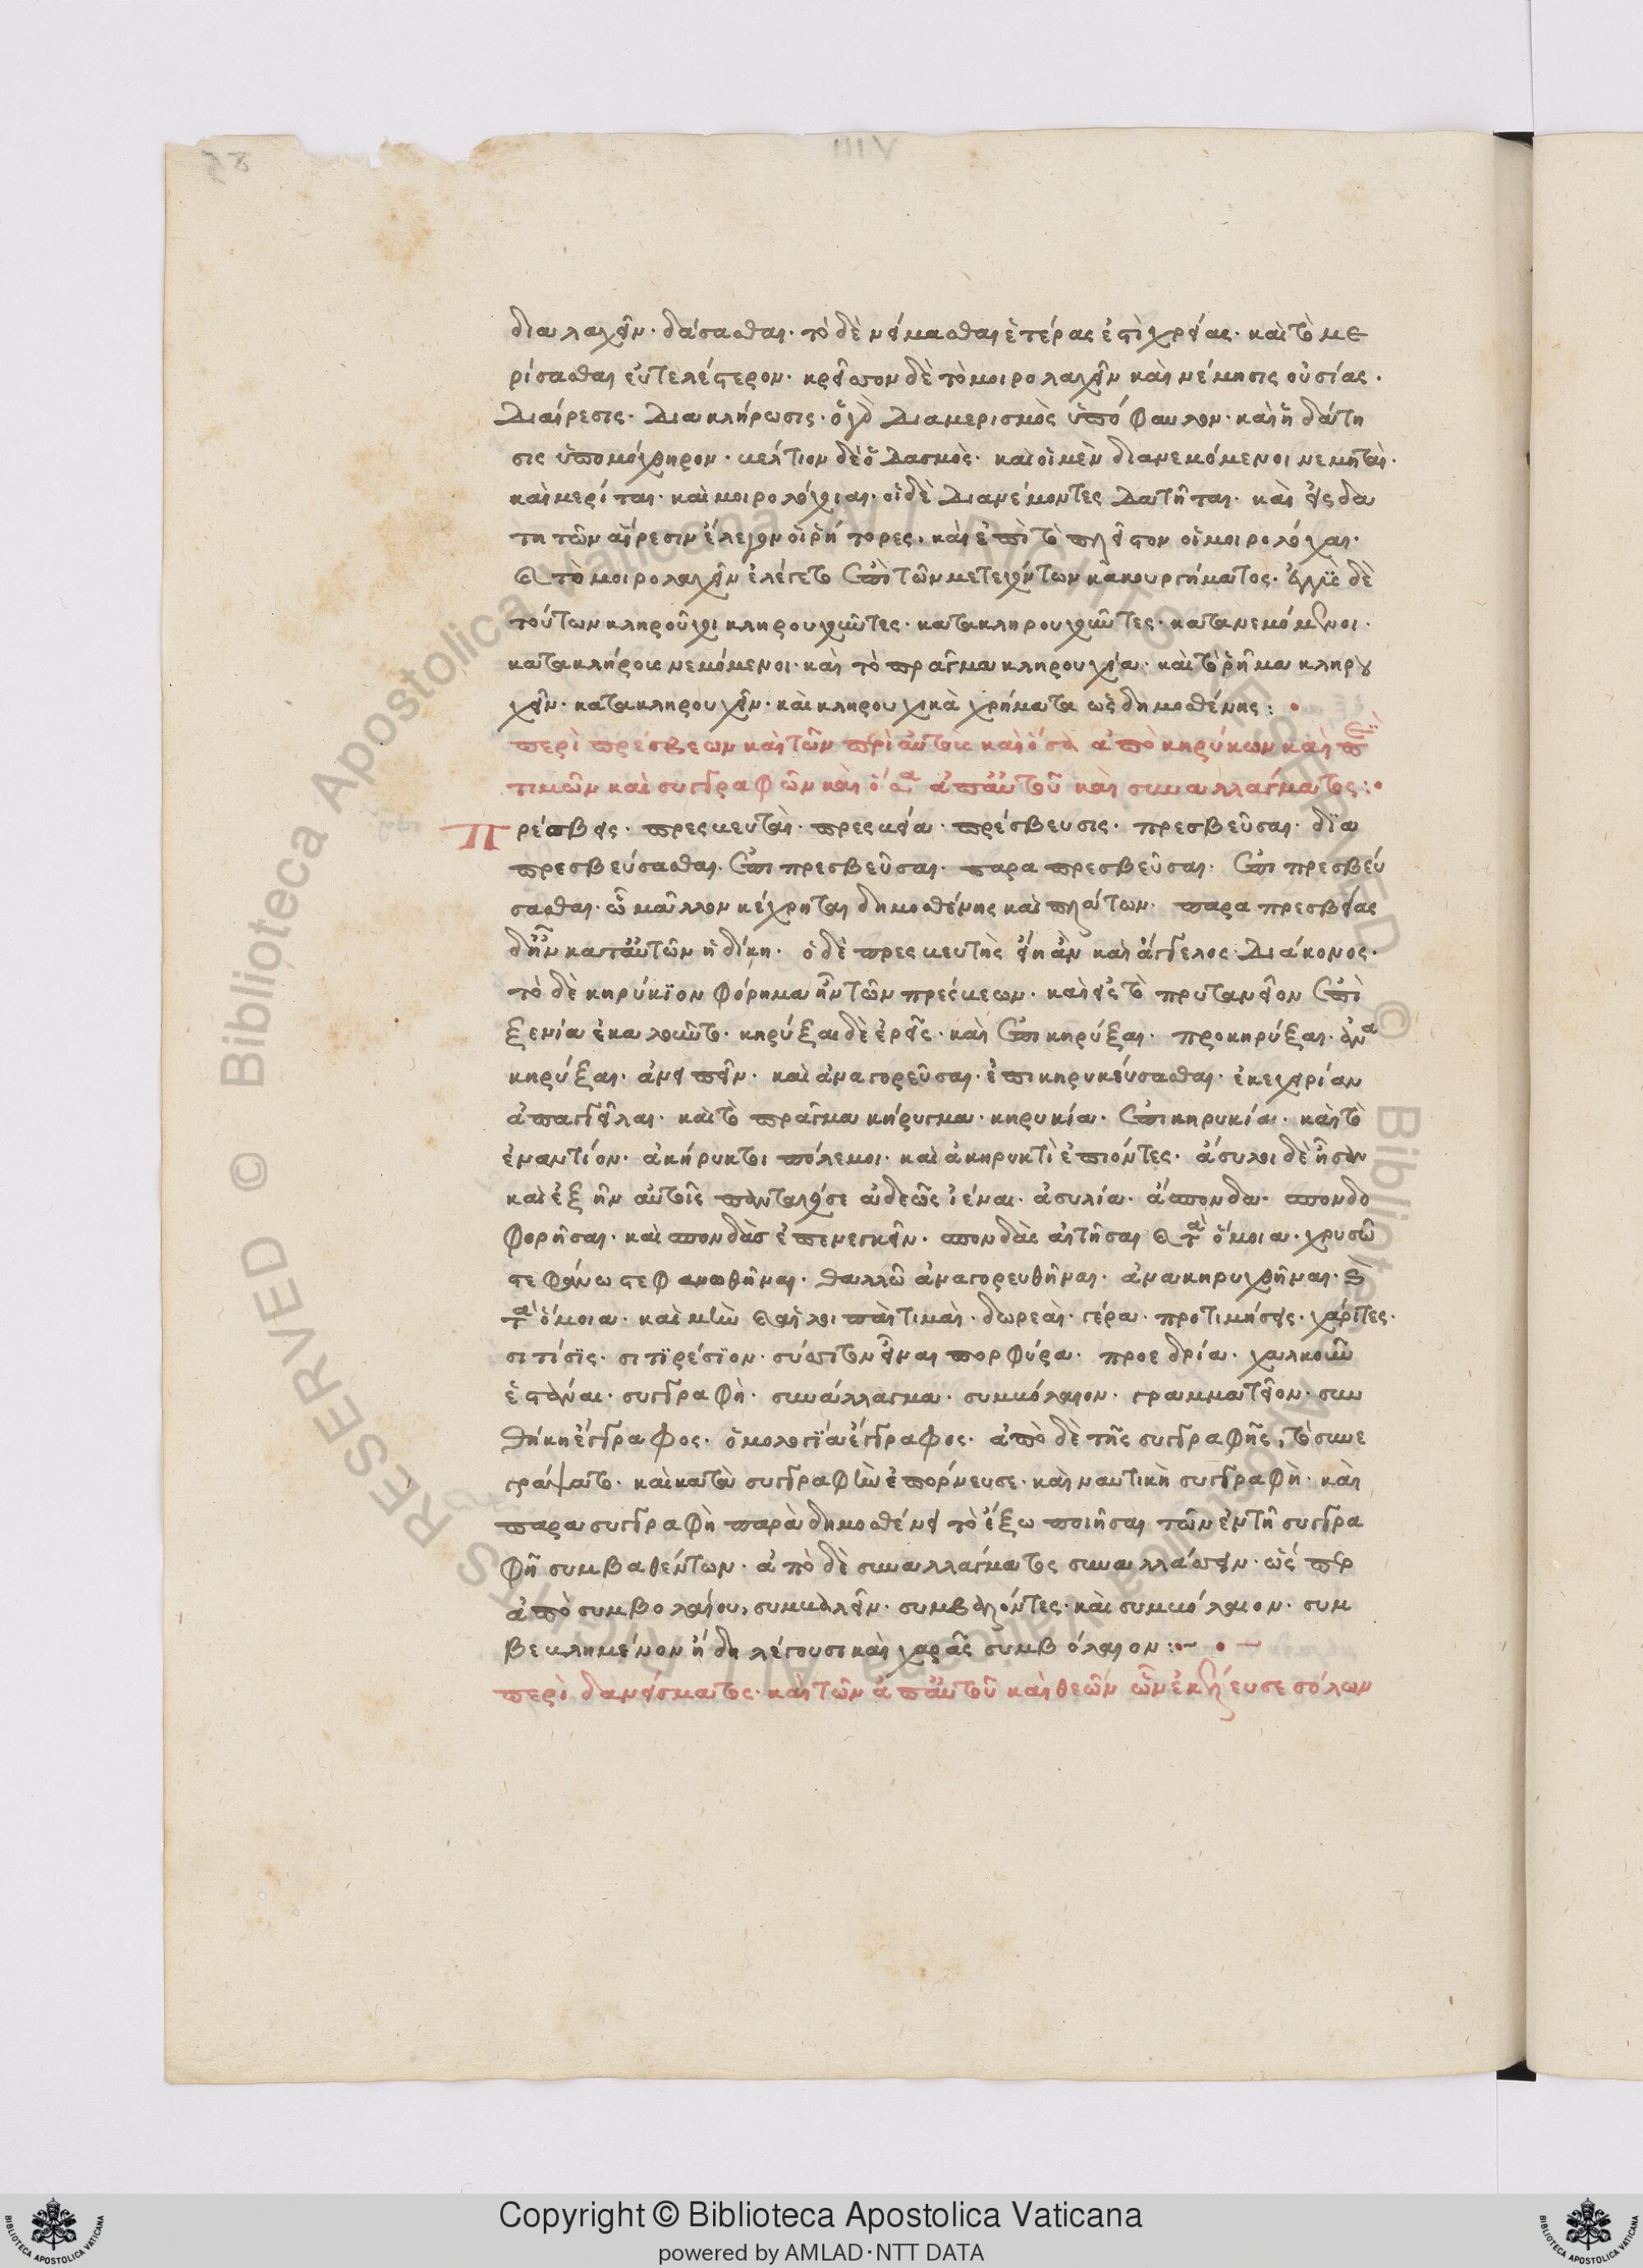 διαλαχεῖν· δάσασθαι· τὸ δὲ νείμασθαι ἑτέρας ἐστὶ χρείας· καὶ τὸ με
ρίσασθαι εὐτελέστερον· κρεῖσσον δὲ τὸ μοιρολαχεῖν καὶ νέμησις οὐσίας·
Διαίρεσις· Διακλήρωσις· ὁ γὰρ Διαμερισμὸς ὑπόφαυλον· καὶ ἡ δάτη
σις ὑπομόχθηρον· βέλτιον δὲ ὁ Δασμός· καὶ οἱ μὲν διανεμόμενοι νεμηταί·
καὶ μερίται· καὶ μοιρολόγχαι· οἱ δὲ Διανέμοντες Δατῆται· καὶ εἰς δα
τητῶν αἵρεσιν ἔλεγον οἱ ῥήτορες· καὶ ἐπὶ τὸ πλεῖστον οἱ μοιρολόγχαι·
καὶ τὸ μοιρολαχεῖν ἐλέγετο ἐπὶ τῶν μετεχόντων κακουργήματος· δὲ
τούτων κληροῦχοι κληρουχοῦντες· κατακληρουχοῦντες· κατανεμόμενοι·
κατακλήρους νεμόμενοι· καὶ τὸ πρᾶγμα κληρουχία· καὶ τὸ ῥῆμα κληρου
χεῖν· κατακληρουχεῖν· καὶ κληρουχικὰ χρήματα ὡς δημοσθένης:
περὶ πρέσβεων καὶ τῶν περὶ αὐτοὺς καὶ ὅσα ἀπὸ κηρύκων καὶ περὶ
τιμῶν καὶ συγγραφῶν καὶ ὅσα ἀπ' αὐτοῦ καὶ συναλλάγματος:
Πρέσβεις· πρεσβευταί· πρεσβεία· πρέσβευσις· πρεσβεῦσαι· δια
πρεσβεύσασθαι· ἐπιπρεσβεῦσαι· παραπρεσβεῦσαι· ἐπιπρεσβεύ
σασθαι· ᾧ μᾶλλον κέχρηται δημοσθένης καὶ πλάτων· παραπρεσβείας
δ' ἦν κατ' αὐτῶν ἡ δίκη· ὁ δὲ πρεσβευτὴς εἴη ἂν καὶ ἄγγελος· Διάκονος·
τὸ δὲ κηρύκιον φόρημα ἦν τῶν πρέσβεων· καὶ εἰς τὸ πρυτανεῖον ἐπὶ
ξενία ἐκαλοῦντο· κηρύξαι δὲ ἐρεῖς· καὶ ἐπικηρύξαι· προκηρύξαι· ἀνα
κηρύξαι· ἀνειπεῖν· καὶ ἀναγορεῦσαι· ἐπικηρυκεύσασθαι· ἐκεχειρίαν
ἀπαγγεῖλαι· καὶ τὸ πρᾶγμα κήρυγμα· κηρυκία· ἐπικηρυκία· καὶ τὸ
ἐναντίον· ἀκήρυκτοι πόλεμοι· καὶ ἀκηρυκτὶ ἐπιόντες· ἄσυλοι δὲ ἦσαν
καὶ ἐξῆν αὐτοῖς πανταχόσε ἀδεῶς ἰέναι· ἀσυλία· ἄσπονδα· σπονδο
φορῆσαι· καὶ σπονδὰς ἐπενεγκεῖν· σπονδὰς αἰτῆσαι καὶ τὰ ὅμοια· χρυσῷ
στεφάνω στεφανωθῆναι· θαλλῷ ἀναγορευθῆναι· ἀνακηρυχθῆναι· καὶ
τὰ ὅμοια· καὶ μὴν καὶ αἱ λοιπαὶ τιμαί· δωρεαί· γέρα· προτιμήσεις· χάριτες·
σιτίσϊς· σιτϊρέσϊον· σύσσιτον εἶναι πορφύρα· προεδρία· χαλκοῦν
ἑστάναι· συγγραφή· συνάλλαγμα· συμβόλαιον· γραμματεῖον· συν
θήκη ἔγγραφος· ὁμολογία ἔγγραφος· ἀπὸ δὲ τῆς συγγραφῆς, τὸ συνε
γράψατο· καὶ κατὰ συγγραφὴν ἐπόρνευσε· καὶ ναυτικὴ συγγραφή· καὶ
παρασυγγραφὴ παρὰ δημοσθένει τὸ ἔξω ποιῆσαι τῶν ἐν τῇ συγγρα
φῇ συμβαθέντων· ἀπὸ δὲ συναλλάγματος συναλλάσσειν· ὥσπερ
ἀπὸ συμβολαίου, συμβαλεῖν· συμβαλόντες· καὶ συμβόλαιον· συμ
βεβλημένον ἤδη λέγουσι καὶ χαρᾶς συμβόλαιον:
περὶ δανείσματος· καὶ τῶν ἀπ' αὐτοῦ καὶ θεῶν ὧν ἐκέλευσε σόλων
Copyright © Biblioteca Apostolica Vaticana
powered by AMLAD·NTT DATA